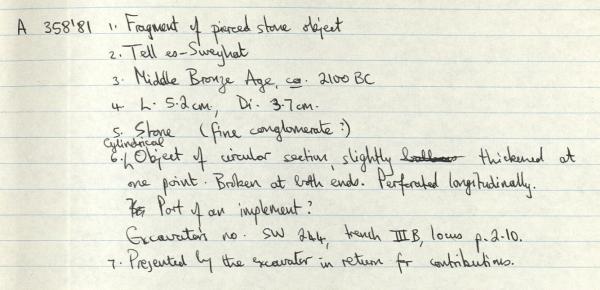 A 358'81 1. Fragment of pierced stone object
2. Tell es-Sweyhat
3. Middle Bronze Age, ca. 2100 BC
4. L. 5.2 cm, Di. 3.7 cm.
5. Stone (fine conglomerate?)
Cylindrical
6. Object of circular section, slightly thickened at
one point. Broken at both ends. Perforated longitudinally.
Part of an implement?
Excavator's no. SW 244, trench IIIB, locus p. 2.10.
7. Presented by the excavator in return for contributions.